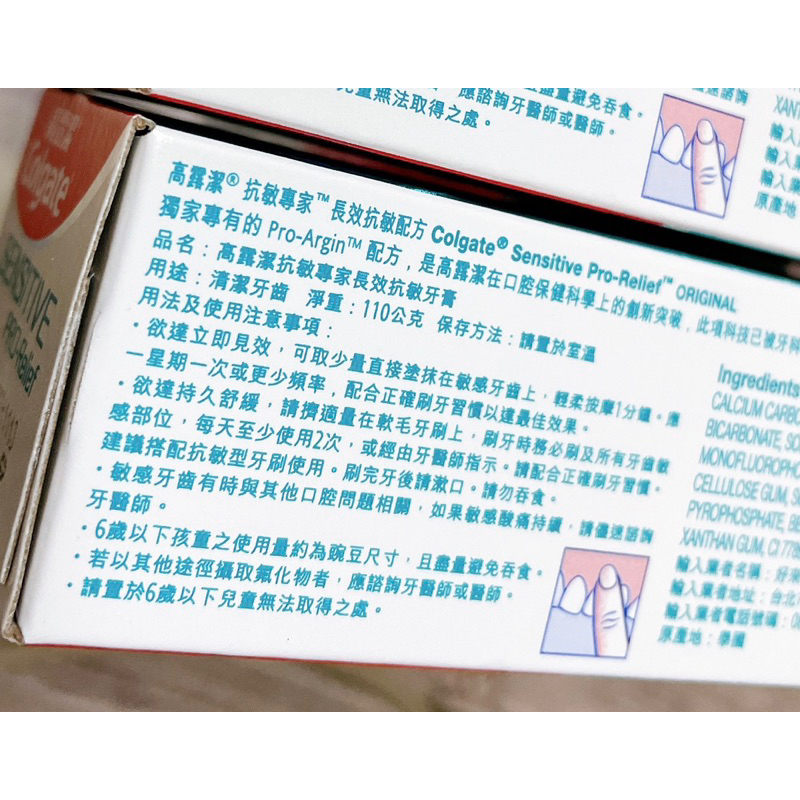 應諮詢牙醫師或醫師。
兒童無法取得之處。
XANTHAN
輸入
輸入
輸入
原產地
Colgate
SENSITIVE
PRO-Relief
高露潔® 抗敏專家™ 長效抗敏配方 Colgate® Sensitive Pro-Relief™ ORIGINAL
獨家專有的 Pro-Argin™ 配方，是高露潔在口腔保健科學上的創新突破，此項科技已被牙科
品名：高露潔抗敏專家長效抗敏牙膏
用途：清潔牙齒 淨重：110公克 保存方法：請置於室溫
用法及使用注意事項：
・欲達立即見效，可取少量直接塗抹在敏感牙齒上，輕柔按摩1分鐘。應
一星期一次或更少頻率，配合正確刷牙習慣以達最佳效果。
・欲達持久舒緩，請擠適量在軟毛牙刷上，刷牙時務必刷及所有牙齒敏
感部位，每天至少使用2次，或經由牙醫師指示。請配合正確刷牙習慣。
建議搭配抗敏型牙刷使用。刷完牙後請漱口。請勿吞食。
・敏感牙齒有時與其他口腔問題相關，如果敏感酸痛持續，請儘速諮詢
牙醫師。
・6歲以下孩童之使用量約為豌豆尺寸，且盡量避免吞食。
・若以其他途徑攝取氟化物者，應諮詢牙醫師或醫師。
・請置於6歲以下兒童無法取得之處。
Ingredients
CALCIUM CARBO
BICARBONATE, SO
MONOFLUOROPHO
CELLULOSE GUM, S
PYROPHOSPHATE, BE
XANTHAN GUM, CI 778
輸入業者名稱：好來
輸入業者地址：台北
輸入業者電話號碼：0
原產地：泰國